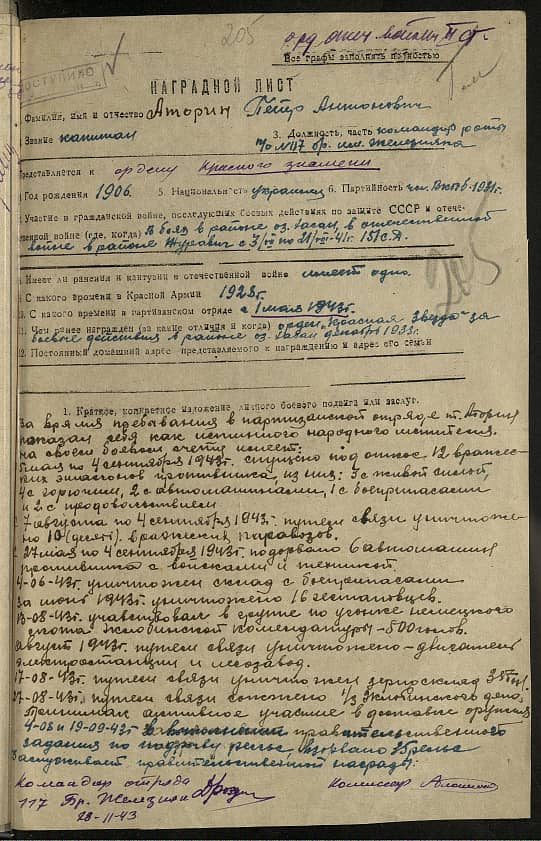 205
орд. отеч. войны II ст.
Все графы заполнять полностью
ПОСТУПИЛО
НАГРАДНОЙ ЛИСТ
Фамилия, имя и отчество Аторин Петр Антонович
Звание капитан
3. Должность, часть командир роты
п/о №117 бр. им. Железняка
Представляется к ордену Красного знамени
Год рождения 1906. 5. Национальность украинец 6. Партийность чл. ВКП/б/ - 1931г.
Участие в гражданской войне, последующих боевых действиях по защите СССР и отече-
ственной войне (где, когда) В боях в районе оз. Хасан, в отечественной
войне в районе Журавич с 3/VII по 21/VIII-41г. 151 с.д.
Имеет ли ранения и контузии в отечественной войне имеет одно
С какого времени в Красной Армии 1928г.
10. С какого времени в партизанском отряде с 1 мая 1943г.
11. Чем ранее награжден (за какие отличия и когда) орден „Красная Звезда" за
боевые действия в районе оз. Хасан декабрь 1938г.
12. Постоянный домашний адрес представляемого к награждению и адрес его семьи
205
1. Краткое, конкретное изложение личного боевого подвига или заслуг.
За время пребывания в партизанской отряде т. Аторин
показал себя как истинного народного мстителя.
на своем боевом счету имеет:
мая по 4 сентября 1943г. спущено под откос 12 вражес-
ких эшелонов противника, из них: 3 с живой силой,
4 с горючим, 2 с автомашинами, 1 с боеприпасами
и 2 с продовольствием
7 августа по 4 сентября 1943г. путем связи уничтоже-
но 10 (десять) вражеских паровозов.
27 мая по 4 сентября 1943г. подорвано 6 автомашин
противника с войсками и техникой.
4-06-43г. уничтожен склад с боеприпасами
За июнь 1943г. уничтожено 16 гестаповцев.
13-08-43г. участвовал в группе по угонке немецкого
скота Жлобинской комендатуры - 500 голов.
август 1943г. путем связи уничтожено - двигатель
электростанции и лесозавод.
17-08-43г. путем связи уничтожен зерносклад
27-08-43г. путем связи сожжено 1/2 депо.
Принимал активное участие в доставке оружия
4-08 и 19-09-43г. правительственного
задания по подрыву рельс, взорвано рельс
Заслуживает правительственной награды:
Командир отряда
117 Бр. Железняка
28-11-43
Комиссар